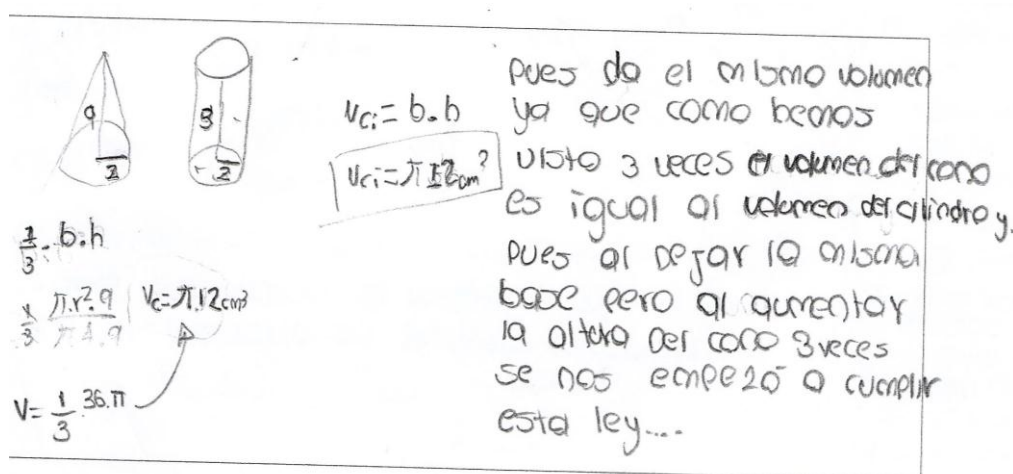 9
2
3
2
1/3 . b.h
1/3 π.r².9
π 4.9
Vc=π.12cm³
V= 1/3 36.π
Vci= b.h
Vci=π 12cm³
pues da el mismo volumen
ya que como bemos
visto 3 veces el volumen del cono
es igual al volumen del cilindro y.
pues al dejar la misma
base pero al aumentar
la altura del cono 3 veces
se nos empezó a cumplir
esta ley....